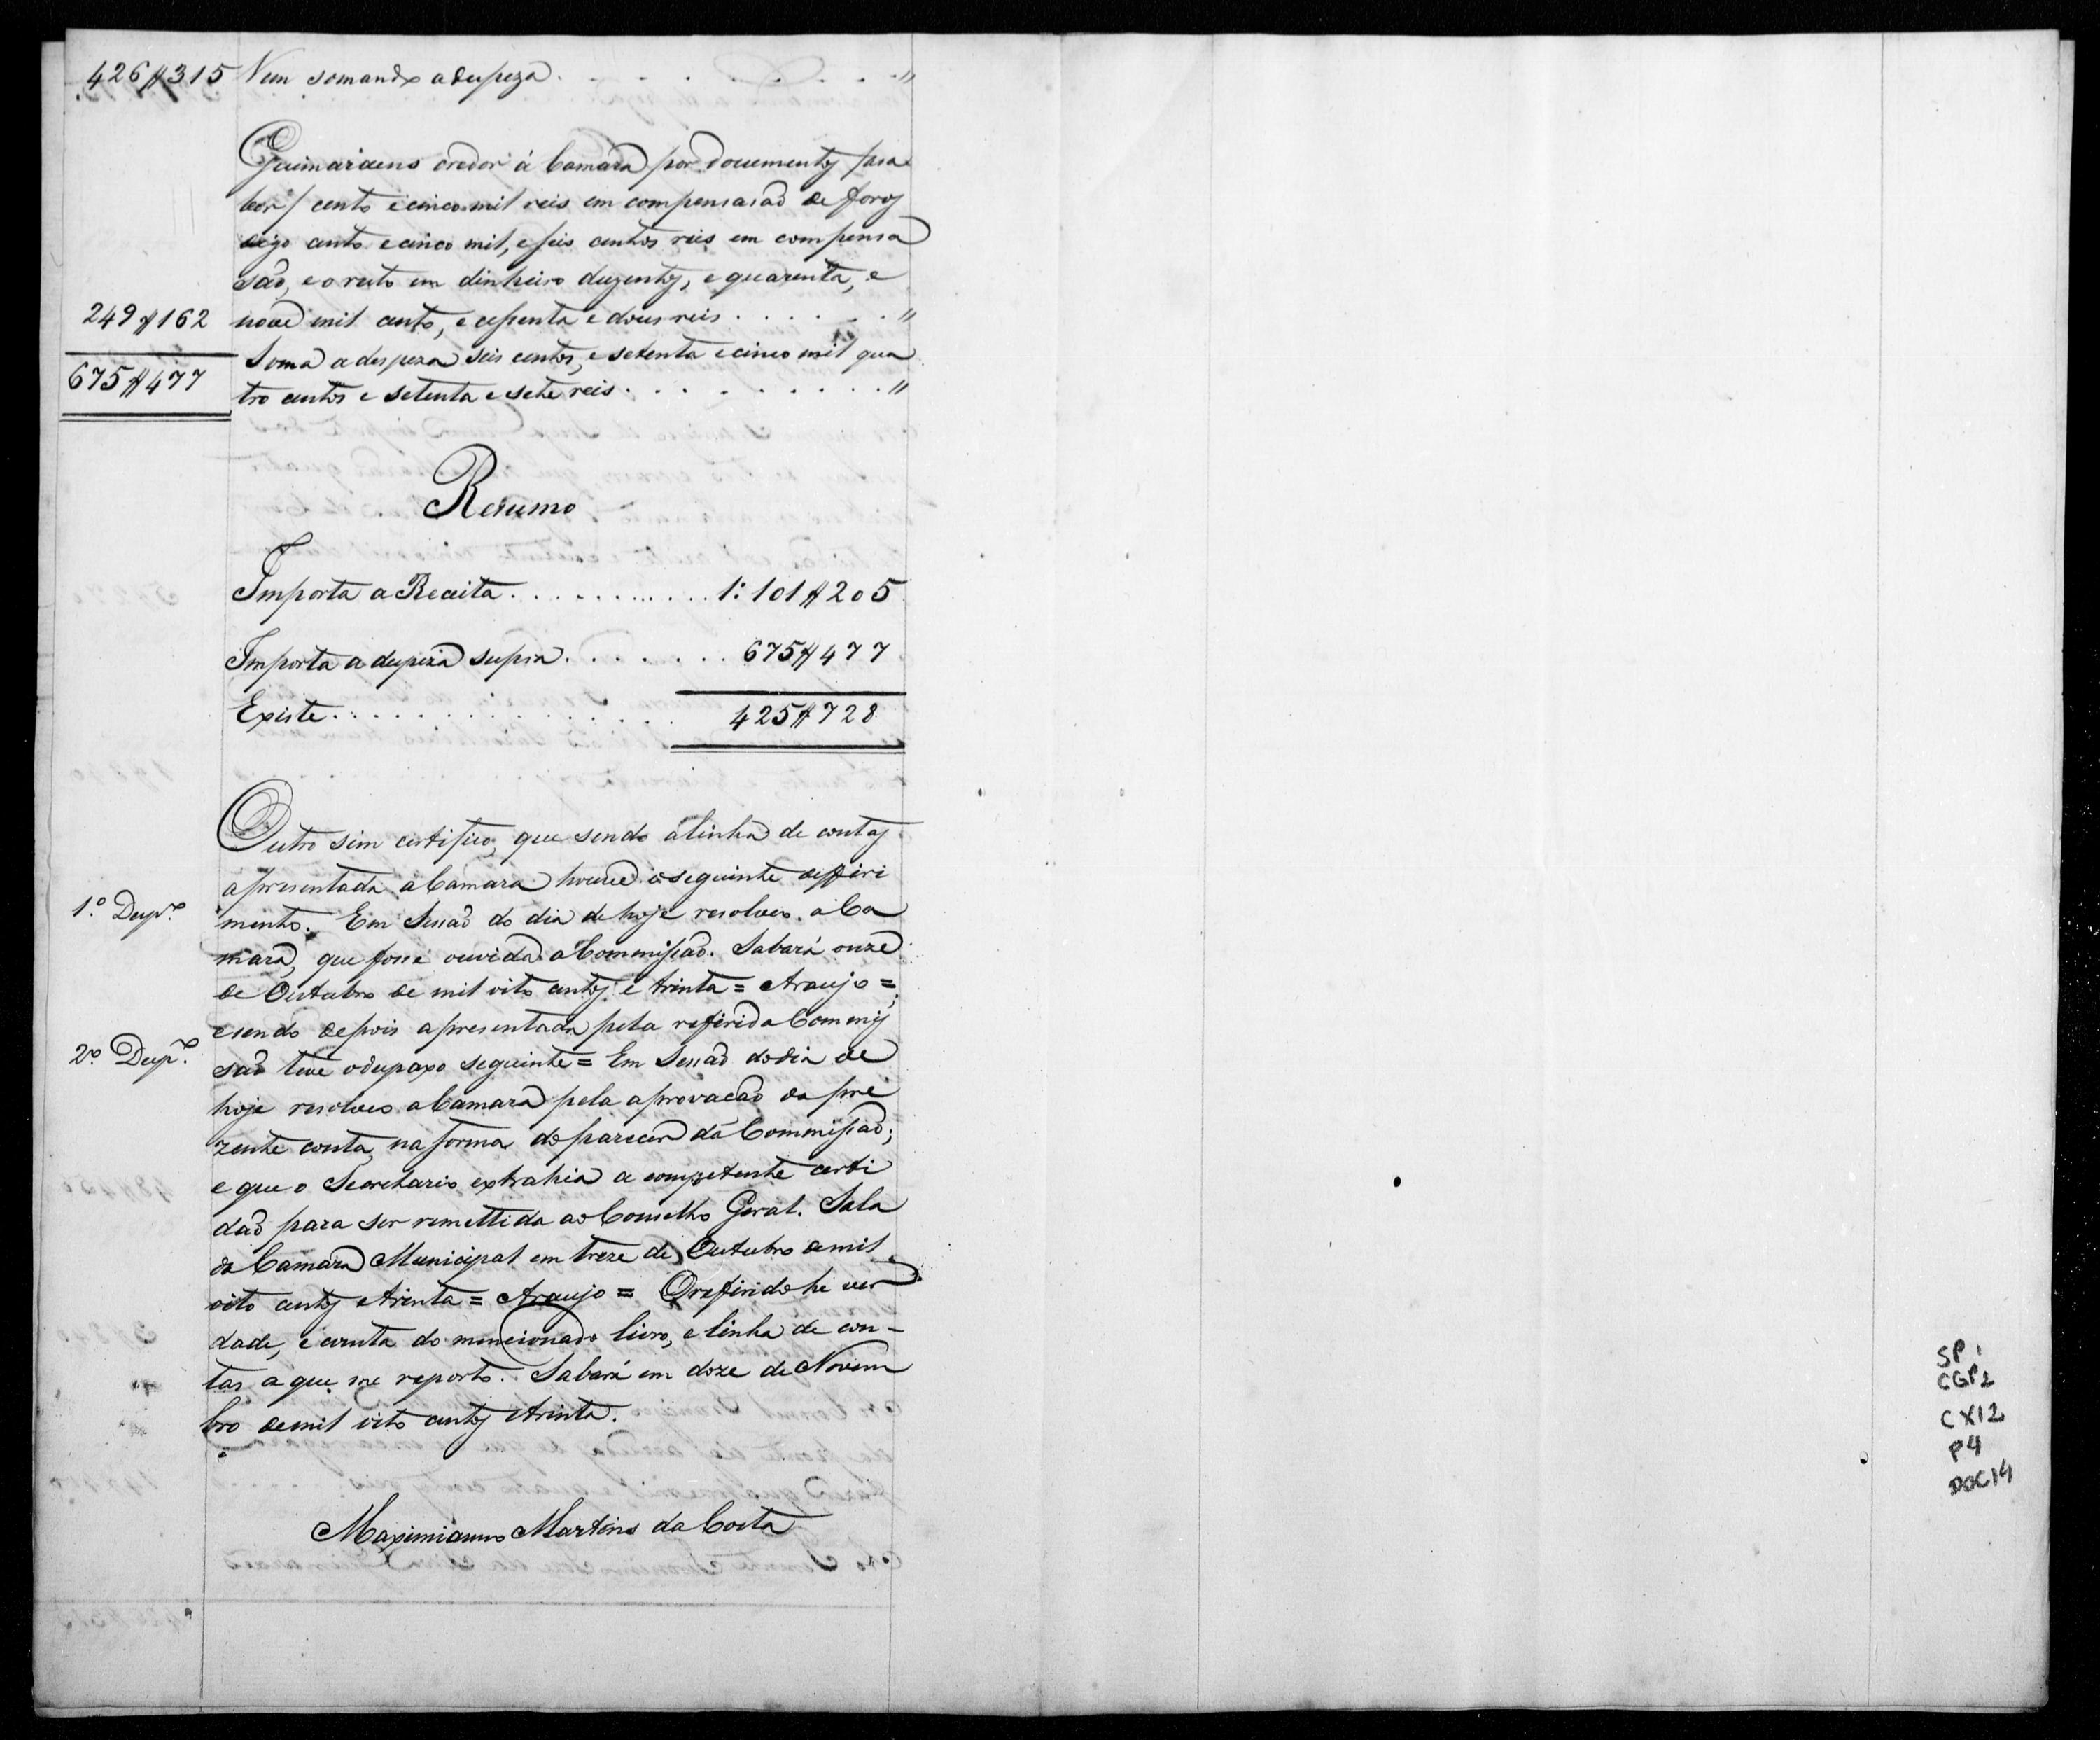 426$315 Vem somando a despeza . . . . . . . "
Guimaraens credor á Camara por documentos, a sa
ber / cento e cinco mil reis em compensasaõ de foros
digo cento e cinco mil, e seis centos reis em compensa
saõ, e o resto em dinheiro duzentos, e quarenta, e
249$162 nove mil cento, e cessenta e dous reis . . . . . . "
Soma a despeza seis centos, e setenta e cinco mil qua
675$477 tro centos e setenta e sete reis . . . . . . . . "
Resumo
Importa a Receita . . . . . . . . . . 1:101$205
Importa a despeza supra . . . . . . . 675$477
Existe . . . . . . . . . . . . 425$728
Outro sim certifico, que sendo a linha de contas
apresentada a Camara houve o seguinte defferi
1.º Desp.º mento. Em Sessaõ do dia de hoje resolveo a Ca
mara, que fosse ouvida a Commissaõ. Sabará onze
de Outubro de mil oito centos e trinta = Araujo =,
e sendo depois apresentada pela referida Commis
2.º Desp.º saõ teve o despaxo seguinte = Em Sessaõ do dia de
hoje resolveo a Camara pela aprovacaõ da pre
zente conta, na forma do parecer da Commissaõ;
e que o Secretario extrahia a competente certi
daõ para ser remettida ao Conselho Geral. Sala
da Camara Municipal em treze de Outubro de mil
oito centos e trinta = Araujo = O referido he ver
dade, e consta do mencionado livro, e linha de con-
tas a que me reporto. Sabará em doze de Novem
bro de mil oito centos e trinta.
Maximianno Martins da Costa
SP 1
CGP2
CX12
P4
DOC14